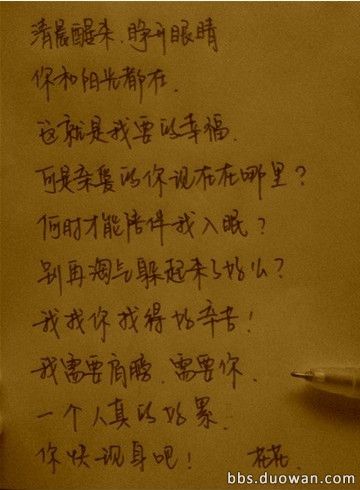 清晨醒来.睁开眼睛
你和阳光都在.
这就是我要的幸福.
可是亲爱的你现在在哪里?
何时才能陪伴我入眠?
别再淘气躲起来了好么?
我找你找得好辛苦!
我需要肩膀.需要你.
一个人真的好累.
你快现身吧! 花花.
bbs.duowan.com